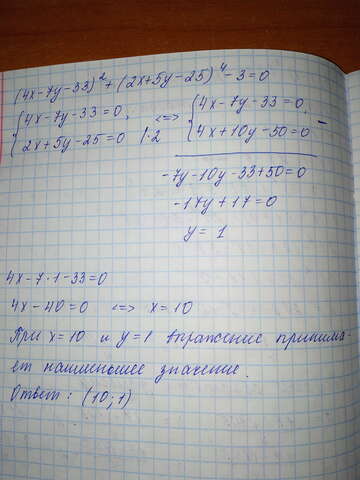 (4x-7y-33)²+(2x+5y-25)⁴-3=0
{4x-7y-33=0, <=> {4x-7y-33=0
{2x+5y-25=0 |·2 {4x+10y-50=0 -
-7y-10y-33+50=0
-17y+17=0
y=1
4x-7·1-33=0
4x-40=0 <=> x=10
При x=10 и y=1 выражение принима
ет наименьшее значение.
Ответ: (10;1)